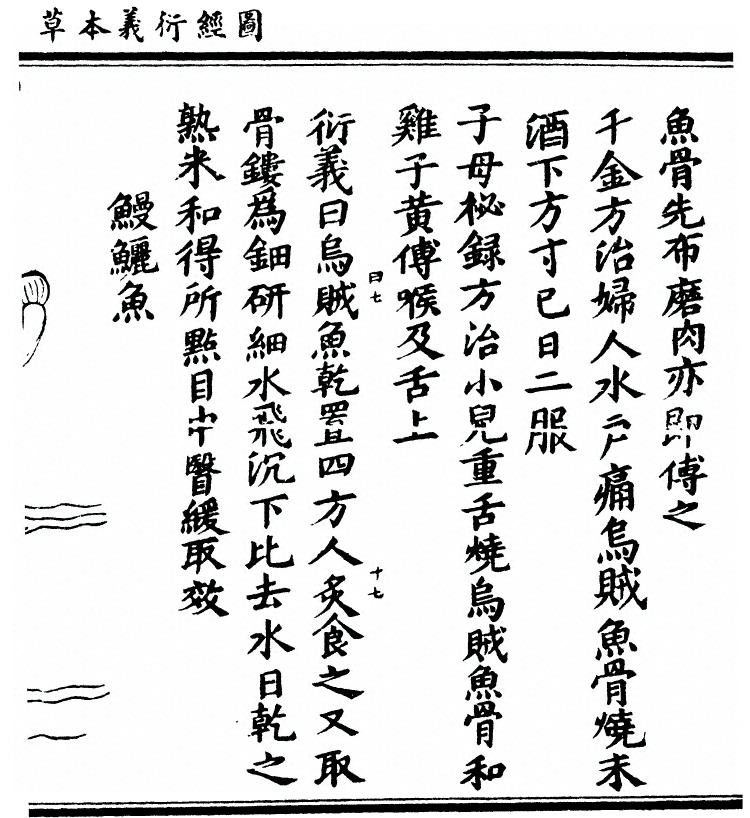 圖經衍義本草
魚骨先布磨肉亦即傅之
千金方治婦人水戶痛烏賊魚骨燒末
酒下方寸已日二服
子母祕録方治小兒重舌燒烏賊魚骨和
雞子黄傅喉及舌上
十七
衍義曰烏賊魚乾置四方人炙食之又取
骨鏤爲鈿研細水飛沉下比去水日乾之
熟米和得所點目中瞖緩取效
鰻鱺魚